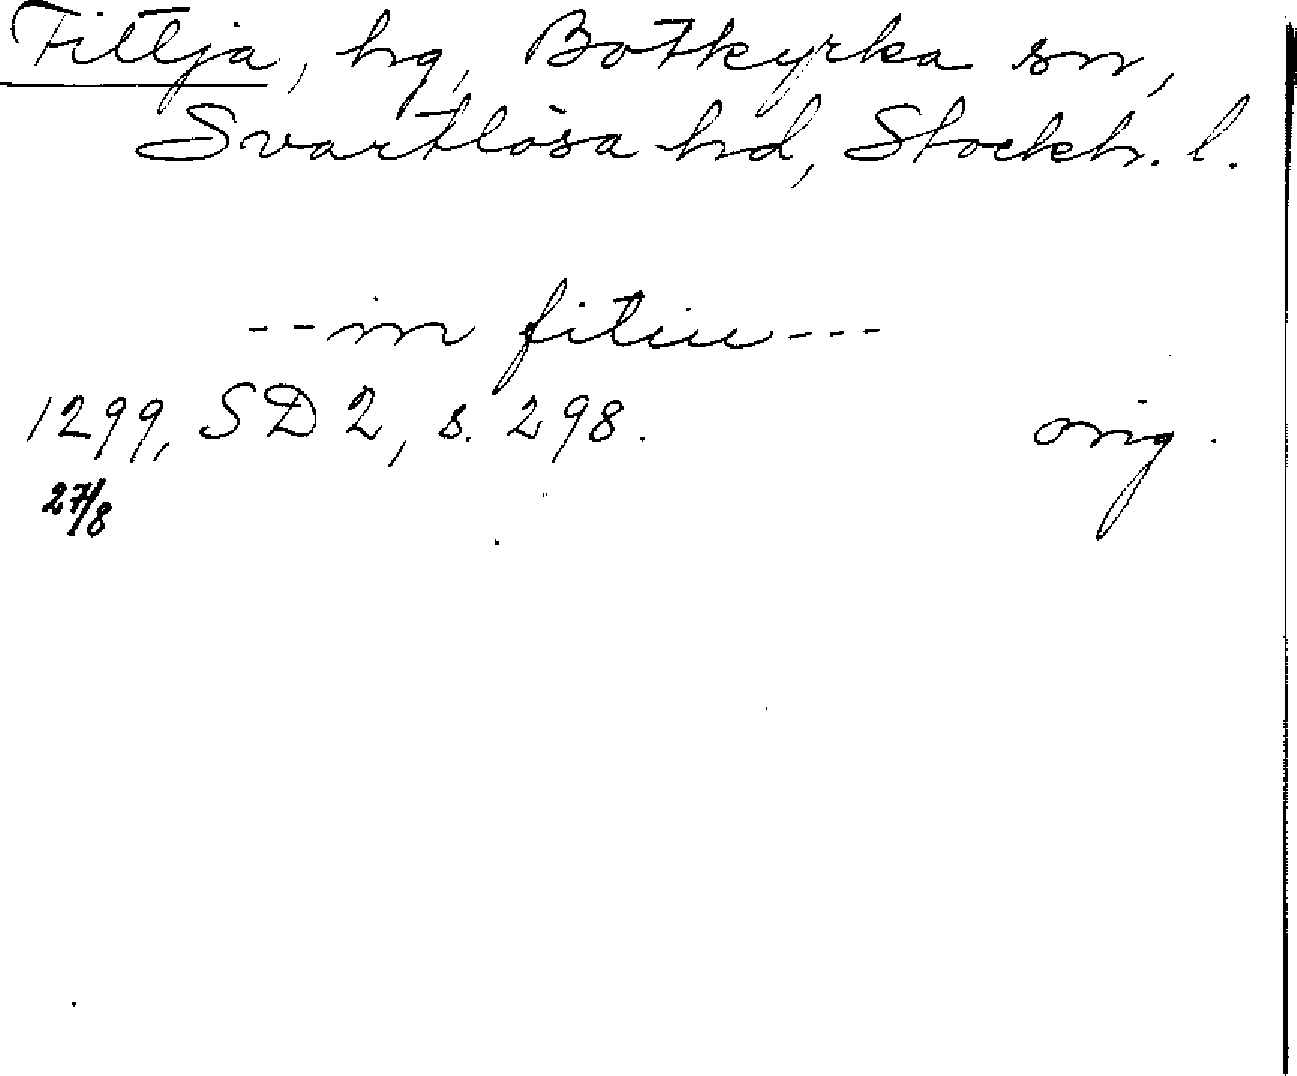 Fittja, hg, Botkyrka sn,
Svartlösa hd, Stockh. l.
--in fitiu---
1299, SD 2, s. 298. orig.
27/8